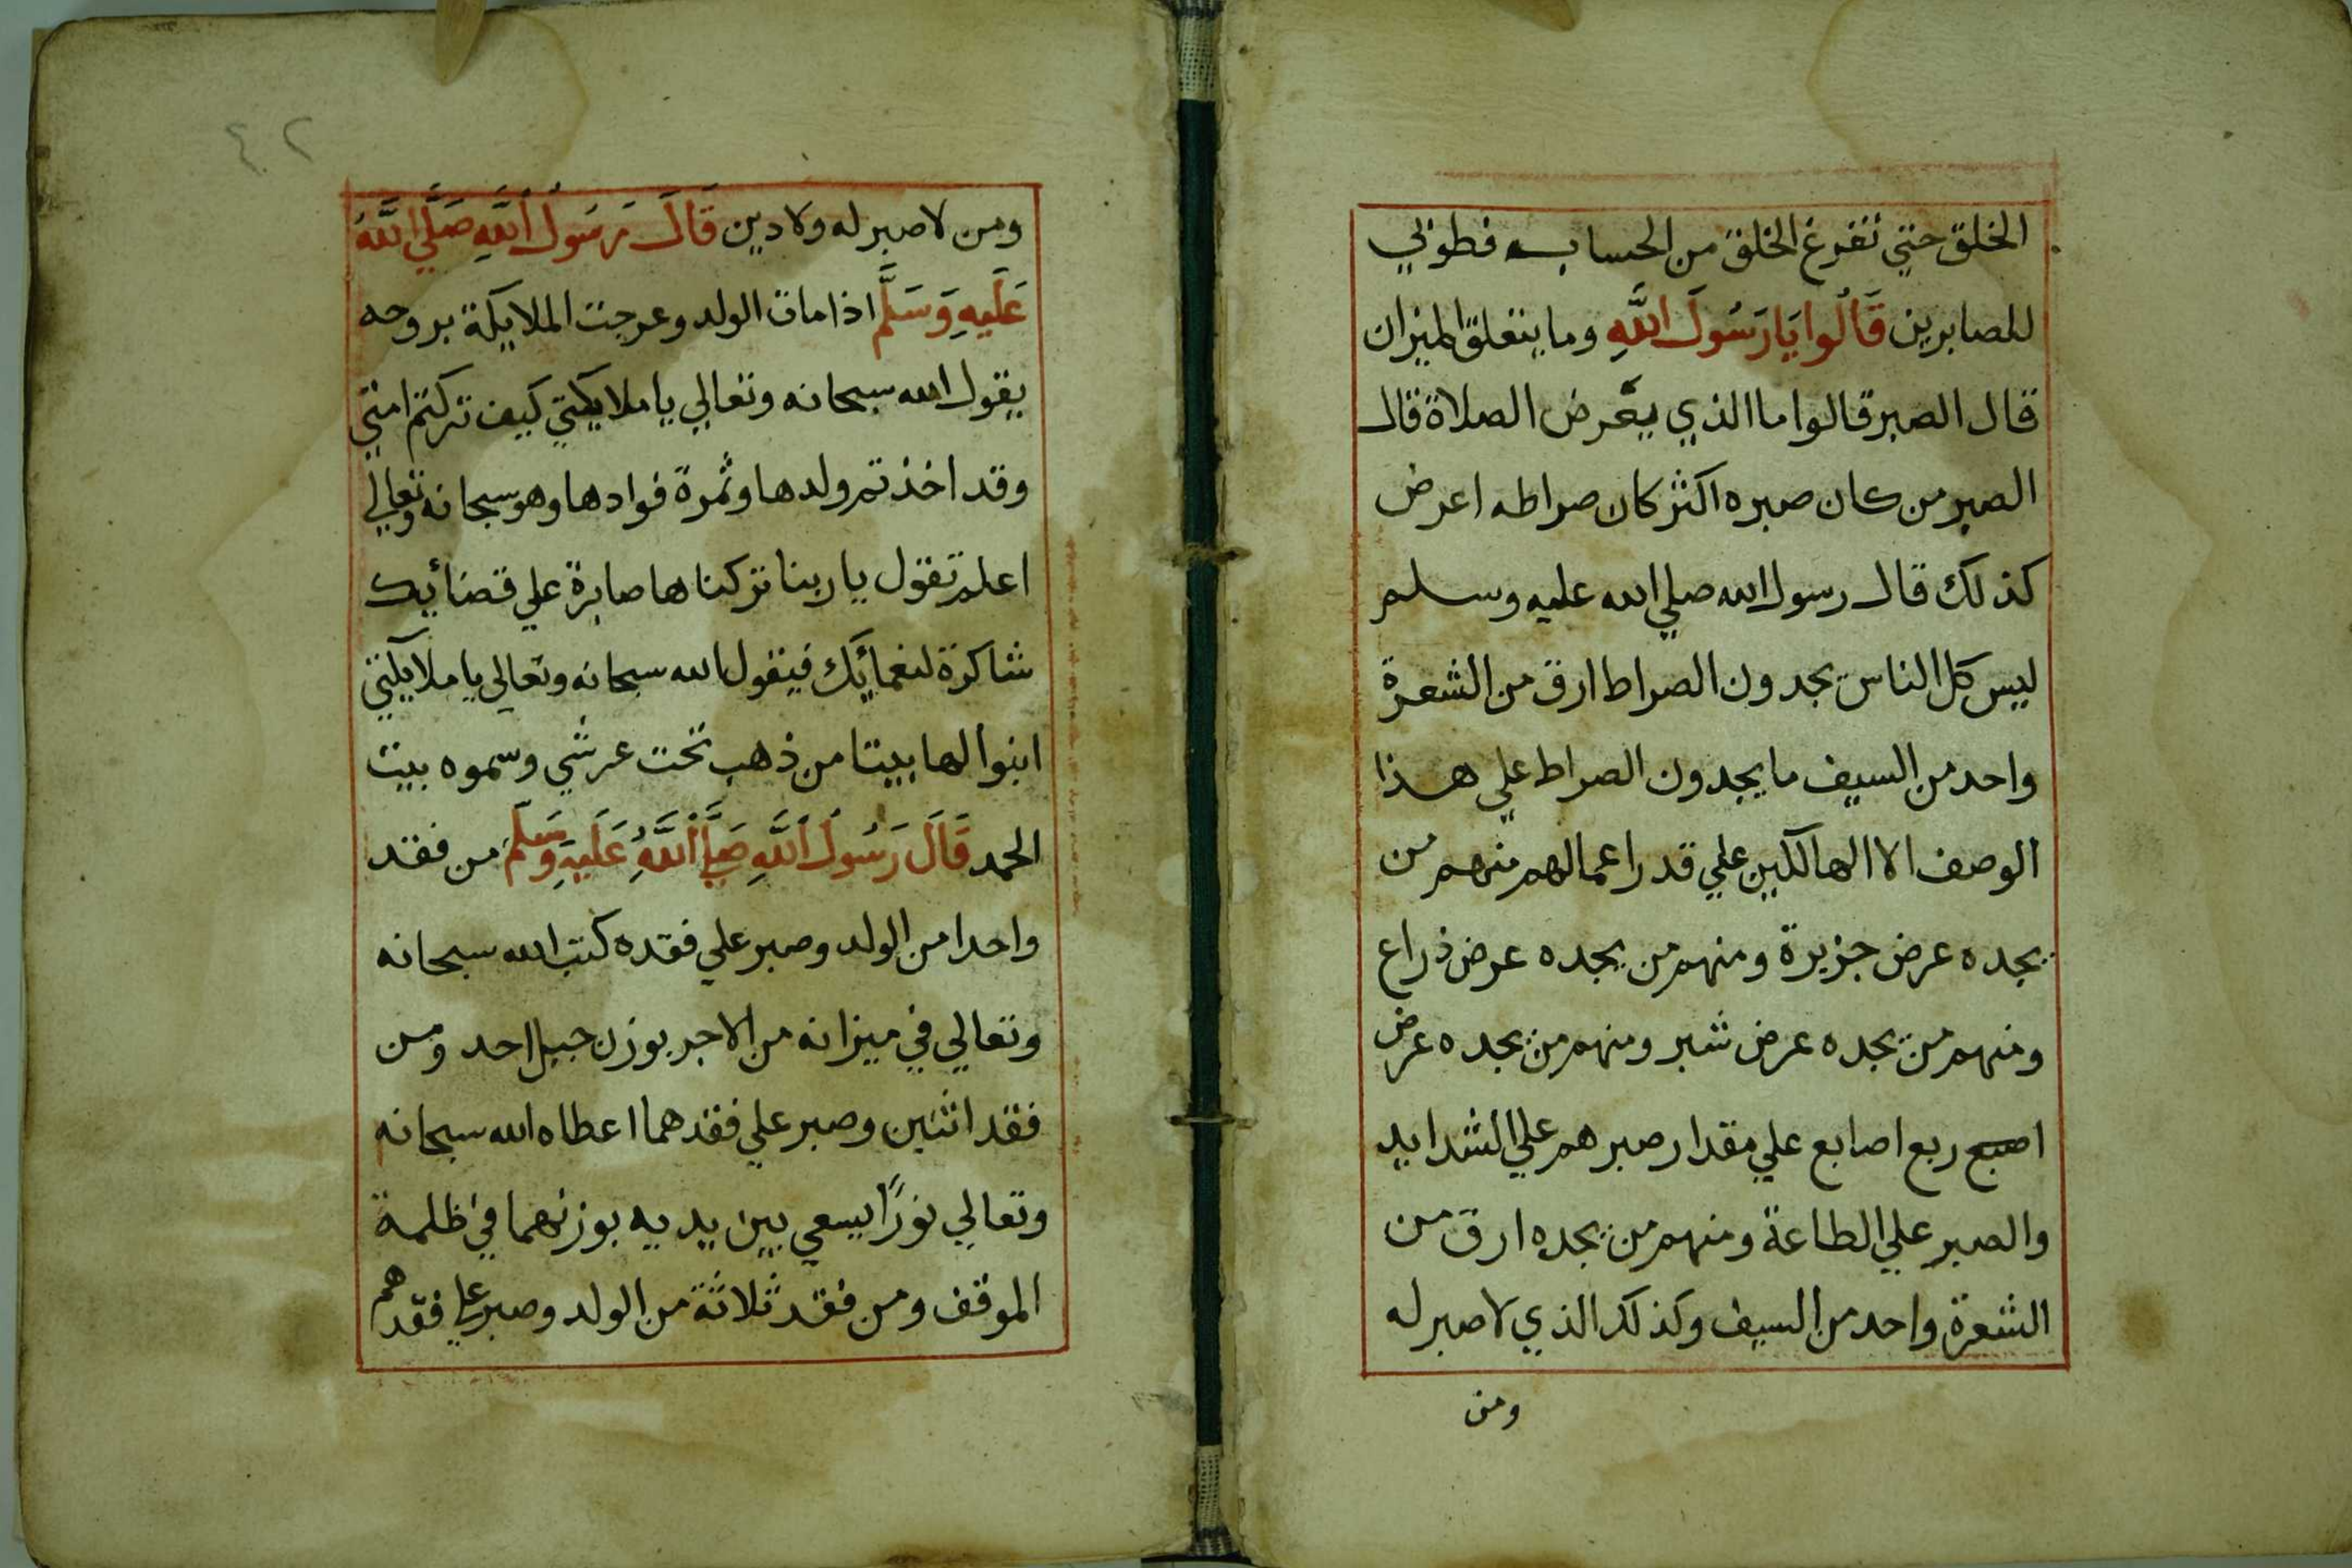 الخلق حتي تفرغ الخلق من الحساب فطوبي
للصابرين قَالُوا يَا رَسُولَ اللَّهِ وما يتعلق الميزان
قال الصبر قالوا ما الذي يعرض الصلاة قال
الصبر من كان صبره اكثر كان صراطه اعرض
كذلك قال رسول الله صلي الله عليه وسلم
ليس كل الناس يجدون الصراط ارق من الشعرة
واحد من السيف ما يجدون الصراط علي هذا
الوصف الا الهالكين علي قدر اعمالهم منهم من
يجده عرض جزيرة ومنهم من يجده عرض ذراع
ومنهم من يجده عرض شبر ومنهم من يجده عرض
اصبع ربع اصابع علي مقدار صبرهم علي الشدايد
والصبر علي الطاعة ومنهم من يجده ارق من
الشعرة واحد من السيف وكذلك الذي لا صبر له
ومن
٤٢
ومن لا صبر له ولا دين قَالَ رَسُولُ اللَّهِ صَلَّي اللَّهُ
عَلَيهِ وَسَلَّم اذا مات الولد وعرجت الملايكة بروحه
يقول الله سبحانه وتعالي يا ملايكتي كيف تركتم امتي
وقد اخذتم ولدها وثمرة فوادها وهو سبحانه وتعالي
اعلم تقول يا ربنا تركناها صابرة علي قضائيك
شاكرة لنعمائيك فيقول الله سبحانه وتعالي يا ملايكتي
ابنوا لها بيتا من ذهب تحت عرشي وسموه بيت
الحمد قَالَ رَسُولُ اللَّهِ صَلَّي اللَّهُ عَلَيهِ وَسَلَّم من فقد
واحدا من الولد وصبر علي فقده كتب الله سبحانه
وتعالي في ميزانه من الاجر بوزن جبل احد ومن
فقد اثنين وصبر علي فقدهما اعطاه الله سبحانه
وتعالي نورًا يسعي بين يديه بوزنهما في ظلمة
الموقف ومن فقد ثلاثة من الولد وصبر علي فقدهم